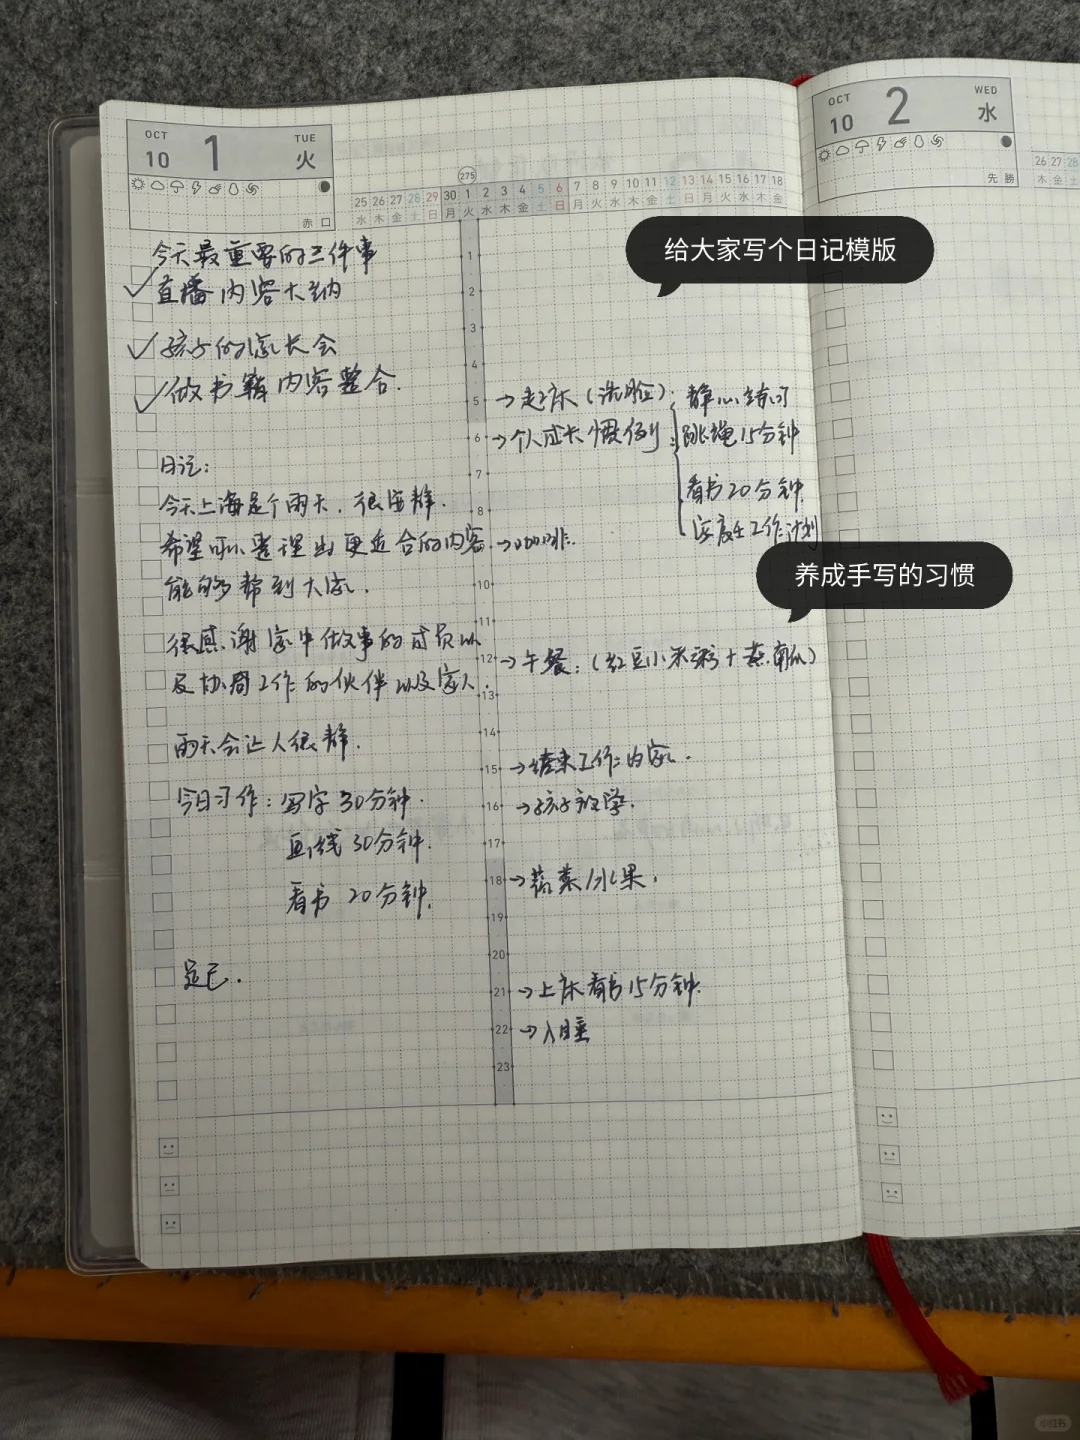 OCT
10
1
TUE
火
赤口
275
25 26 27 28 29 30 1 2 3 4 5 6 7 8 9 10 11 12 13 14 15 16 17 18
水 木 金 土 日 月 火 水 木 金 土 日 月 火 水 木 金 土 日 月 火 水 木 金
OCT
10
2
WED
水
先勝
26 27 28
木 金 土
给大家写个日记模版
养成手写的习惯
今天最重要的三件事
直播内容大纳
孩子的家长会
做书籍内容整合.
日记:
今天上海是个雨天, 很安静.
希望可以整理出更适合的内容.
能够帮到大家.
很感谢家中做事的成员以
及协同工作的伙伴以及家人.
雨天会让人很静.
今日习作: 写字 30分钟.
画线 30分钟.
看书 20分钟.
是已.
1
2
3
4
5 →起床(洗脸): 静心
6 →个人成长惯例 跳绳15分钟
看书20分钟
工作计划
7
8
→咖啡.
10
11
12 →午餐:(红豆小米粥+蒸南瓜)
13
14
15 →结束工作回家.
16 →孩子放学.
17
18 →蔬菜/水果.
19
20
21 →上床看书15分钟.
22 →入睡
23
小红书